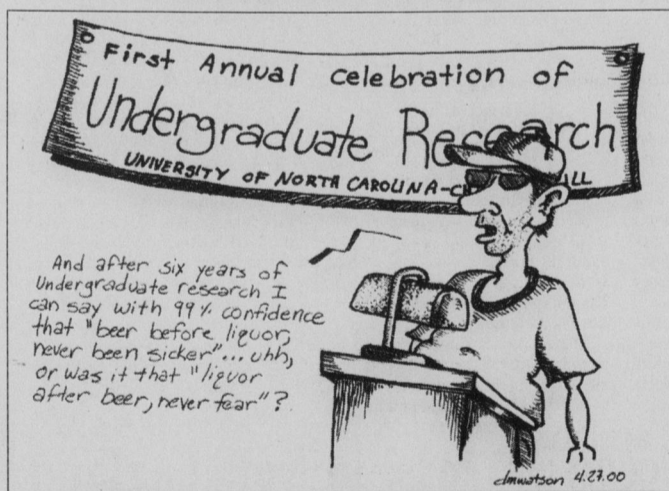 First Annual celebration of
Undergraduate Research
UNIVERSITY OF NORTH CAROLINA-C LL
And after six years of
Undergraduate research I
can say with 99% confidence
that "beer before liquor,
never been sicker"... uhh,
or was it that "liquor
after beer, never fear"?
dmwatson 4.27.00